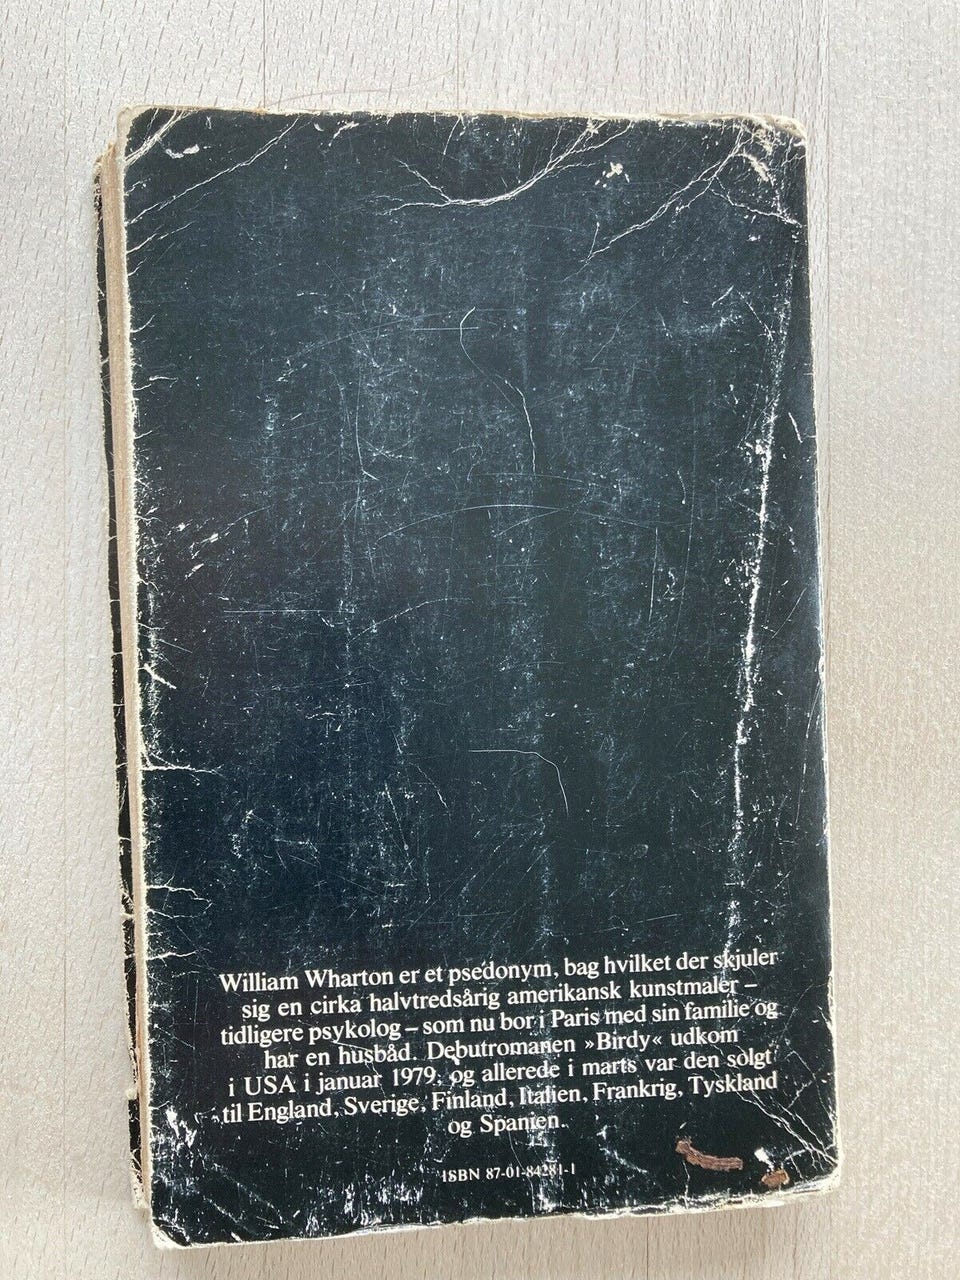 William Wharton er et psedonym, bag hvilket der skjuler
sig en cirka halvtredsårig amerikansk kunstmaler –
tidligere psykolog – som nu bor i Paris med sin familie og
har en husbåd. Debutromanen »Birdy« udkom
i USA i januar 1979, og allerede i marts var den solgt
til England, Sverige, Finland, Italien, Frankrig, Tyskland
og Spanien.
ISBN 87-01-84281-1